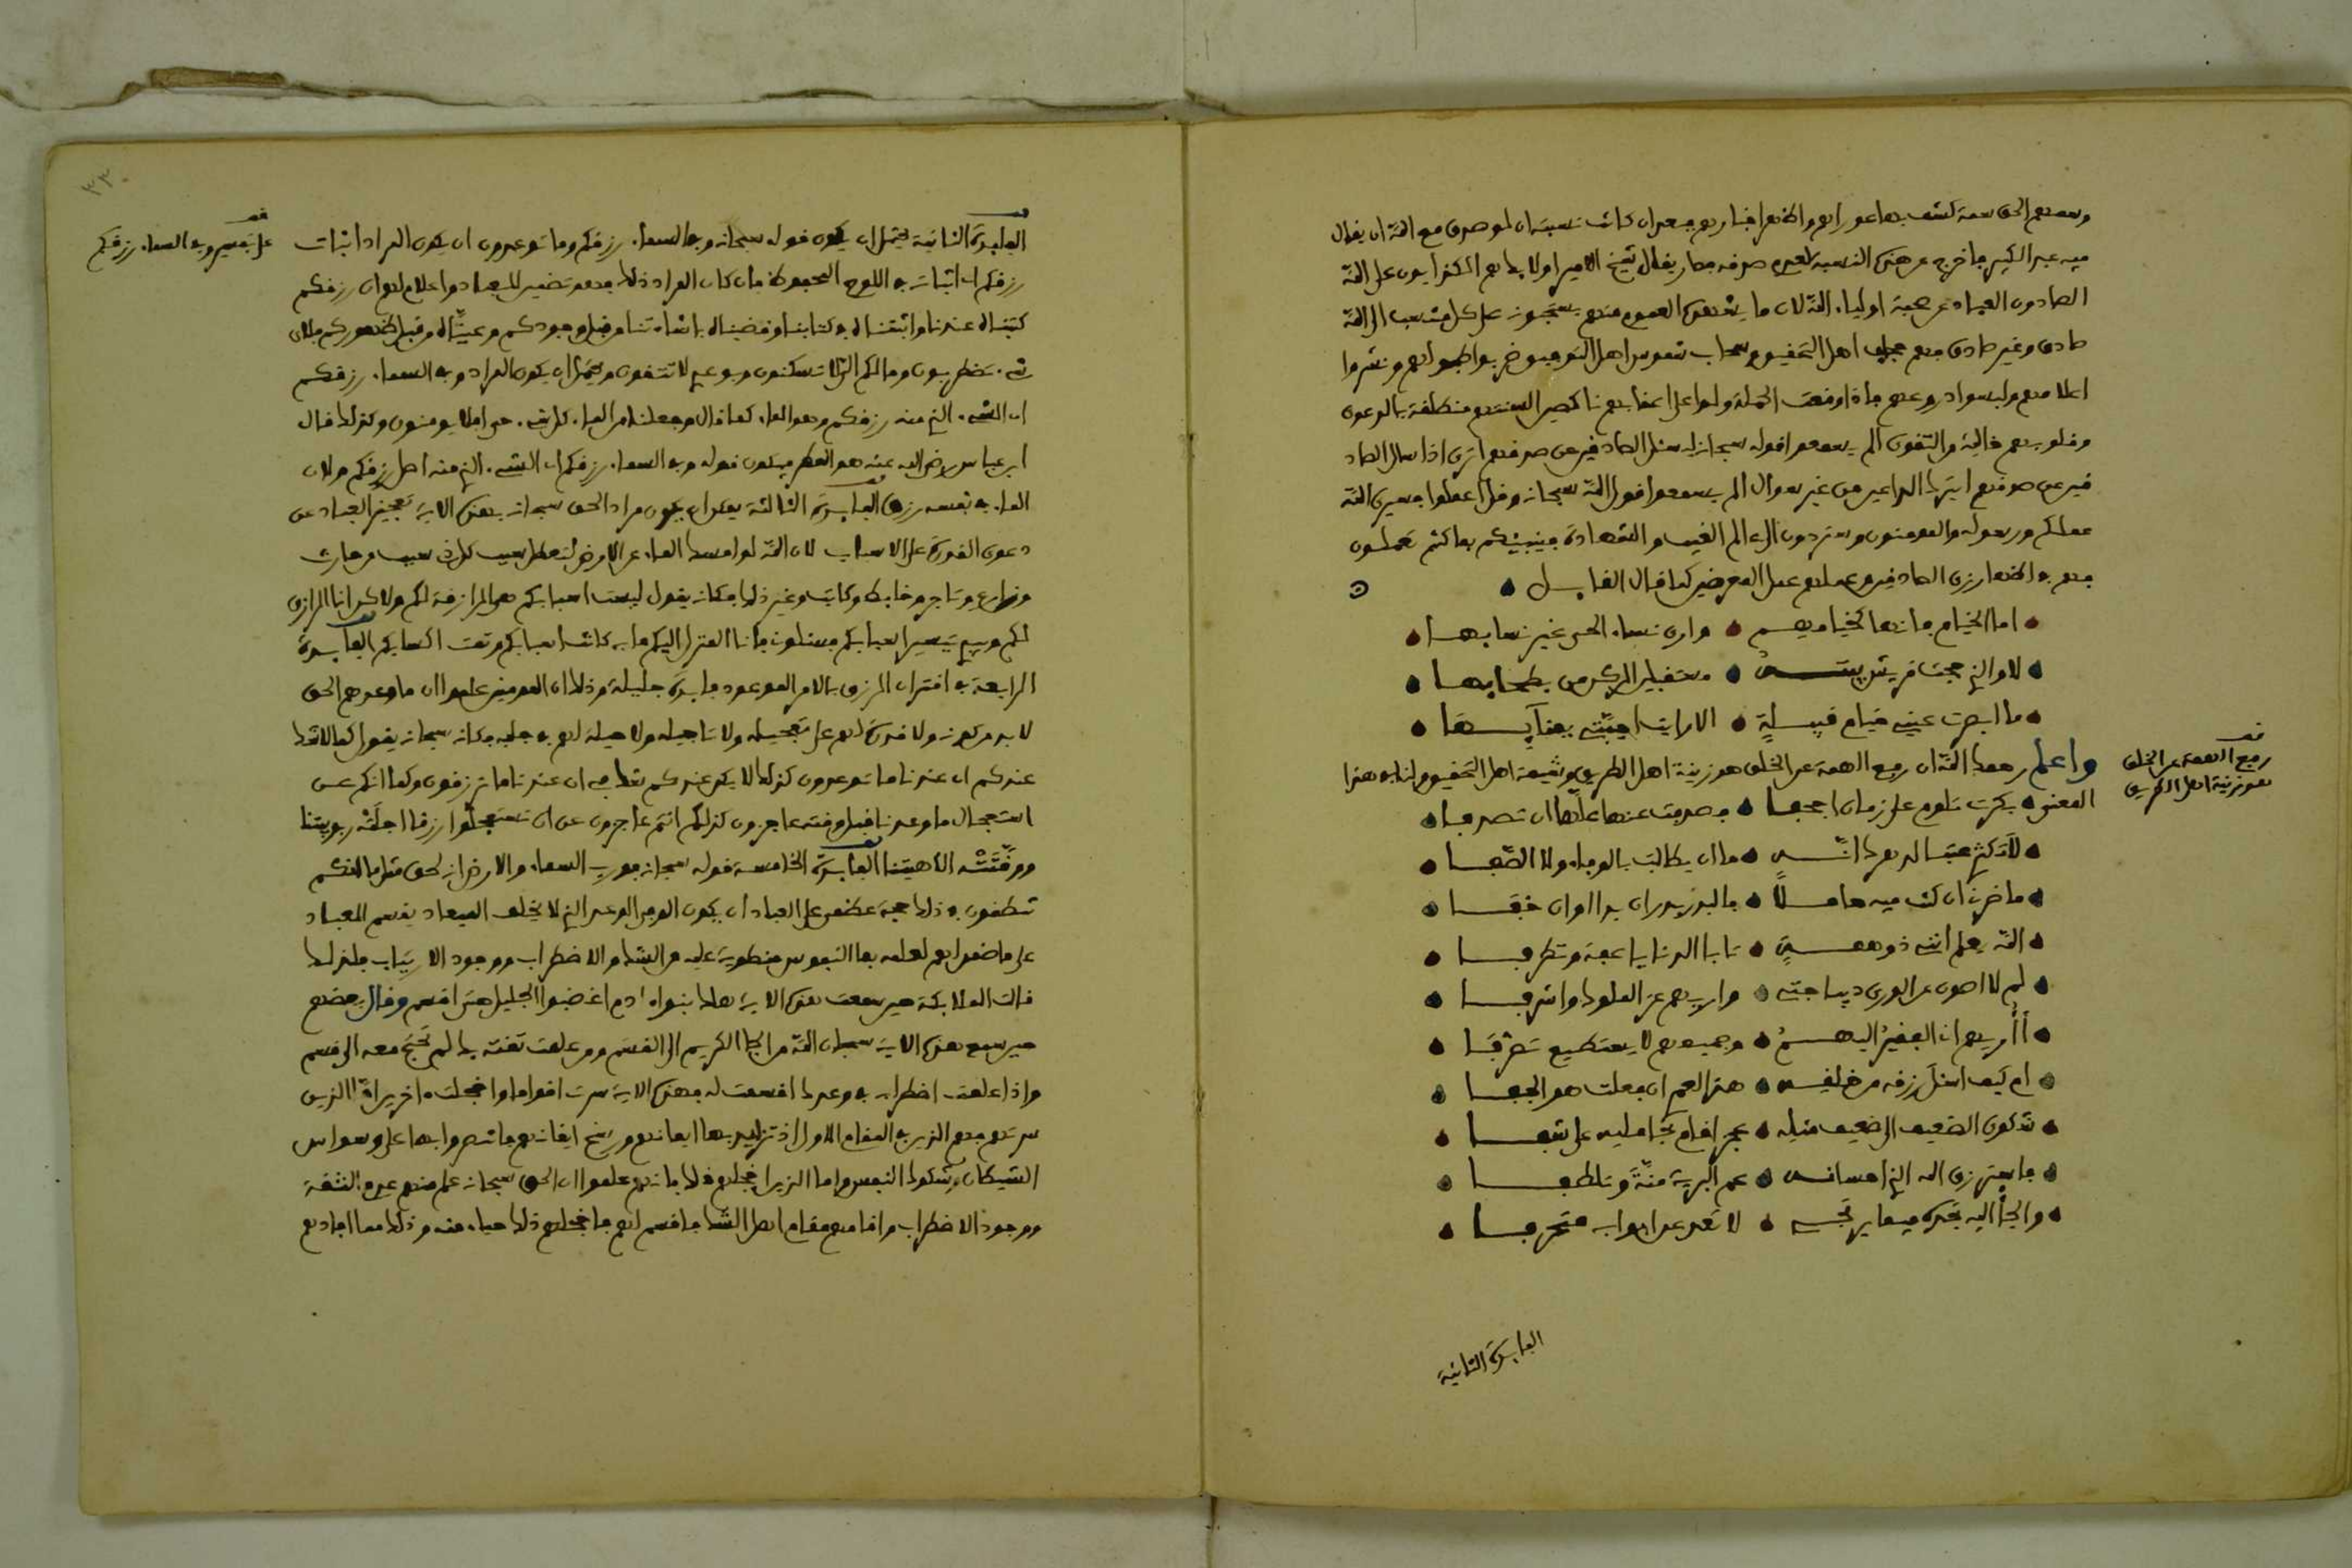 ووسمهم الحق سمة كشف بها عوارهم واظهر اخبارهم فبعد ان كانت نسبته ان لو صدق مع الله ان يقال
فيه عبد الكبير فاخرج من هذه النسبة لعدم صدقه فصار يقال شيخ الامير اولائك هم الكذابون على الله
الصادون العباد عن صحبة اولياء الله لان ما يشهده العموم منهم يسحبونه على كل منتسب الى الله
صادق وغير صادق فهم حجب اهل التحقيق وسحاب شموس اهل التوفيق ضربوا طبولهم ونشروا
اعلامهم ولبسوا دروعهم فاذا وقعت الحملة ولوا على اعقابهم ناكصين السنتهم منطلقة بالدعوى
وقلوبهم خالية من التقوى الم يسمعوا قوله سبحانه ليسئل الصادقين عن صدقهم اترى اذا سال الصاد
قين عن صدقهم ايترك المدعين من غير سوال الم يسمعوا قول الله سبحانه وقل اعملوا فسيرى الله
عملكم ورسوله والمومنون وستردون الى عالم الغيب والشهادة فينبئكم بما كنتم تعملون
فهم في اظهار زي الصادقين وعملهم عمل المعرضين كما قال القايل
اما الخيام فانها كخيامهم وارى نساء الحي غير نسايها
لا والذي حجت قريش بيته مستقبلين الركن من بطحايها
ما ابصرت عيني خيام قبيلة الا رايت احبتي بفنايها
واعلم رحمك الله ان رفع الهمة عن الخلق هو زينة اهل الطريق وشيمة اهل التحقيق ولنا في هذا
المعنى بكرت تلوم على زمان اجحفا فصدفت عنها علها ان تصدفا
لا تكثري عتبا لدهرك انه ما ان يطالب بالوفاء ولا الصفا
ما ضرني ان كنت فيه خاملا فالبدر بدر ان بدا او ان خفى
الله يعلم انني ذو همة تابا الدنايا عفة وتطرفا
لم لا اصون عن الورى ديباجتي واريهم عز الملوك واشرفا
أأريهم اني الفقير اليهم وجميعهم لا يستطيع تصرفا
ام كيف اسئل رزقه من خلقه هذا لعمري ان فعلت هو الجفا
شكوى الضعيف الى ضعيف مثله عجز اقام بحامليه على شفا
فاسترزق الله الذي احسانه عم البرية منة وتلطفا
والجأ اليه تجده فيما يرتجى لا تعد عن ابوابه متحرفا
قف
رفع الهمة عن الخلق
هو زينة اهل الطريق
الفايدة الثانية
٣٣٠
قف
على تفسير وفي السماء رزقكم
الفايدة الثانية يحتمل ان يكون قوله سبحانه وفي السماء رزقكم وما توعدون ان يكون المراد اثبات
رزقكم اي اثباته في اللوح المحفوظ فان كان المراد ذلك فهو تطمين للعباد واعلام لهم ان رزقكم
كتبناه عندنا واثبتناه في كتابنا وقضيناه باثباتنا من قبل وجودكم وعيناه من قبل ظهوركم فلاي
شيء تضطربون وما لكم الي لا تسكنون وبوعدي لا تثقون ويحتمل ان يكون المراد وفي السماء رزقكم
اي الشيء الذي منه رزقكم وهو الماء كما قال وجعلنا من الماء كل شيء حي افلا يومنون وكذلك قال
ابن عباس رضي الله عنه هو المطر فيكون قوله وفي السماء رزقكم اي الشيء الذي منه اصل رزقكم ولان
الماء في نفسه رزق الفايدة الثالثة يمكن ان يكون مراد الحق سبحانه بهذه الاية تعجيز العباد عن
دعوى القدرة على الاسباب لان الله لو امسك الماء عن الارض لتعطل سبب كل ذي سبب من حارث
وزارع وتاجر وخايط وكاتب وغير ذلك فكانه يقول ليست اسبابكم هي الرازقة لكم ولكن انا الرازق
لكم وبيدي تيسير اسبابكم فاني انا المنزل اليكم ما به كانت اسبابكم وتمت اكسابكم الفايدة
الرابعة في اقتران الرزق بالامر الموعود فايدة جليلة وذلك ان المومنين علموا ان ما وعدهم الحق
لا بد من كونه ولا قدرة لهم على تعجيله ولا تاجيله ولا حيلة لهم في جلبه فكانه سبحانه يقول كما لا شك
عندكم ان عندنا ما توعدون كذلك لا يكن عندكم شك في ان عندنا ما ترزقون وكما انكم عن
استعجال ما وعدنا قبل وقته عاجزون كذلك انتم عاجزون عن ان تستعجلوا رزقا اجلته ربوبيتنا
ووقتته الاهيتنا الفايدة الخامسة قوله سبحانه فورب السماء والارض انه لحق مثل ما انكم
تنطقون في ذلك حجة عظمى على العباد ان يكون الوفي الوعد الذي لا يخلف الميعاد يقسم للعباد
على ما ضمن لهم لعلمه بما النفوس منطوية عليه من الشك والاضطراب ووجود الارتياب فلذلك
قالت الملائكة حين سمعت هذه الاية هلك بنو ادم اغضبوا الجليل حتى اقسم وقال بعضهم
حين سمع هذه الاية سبحان الله من الجا الكريم الى القسم ومن علمت ثقته بك لم تحتج معه الى قسم
واذا علمت اضطرابه في وعدك اقسمت له فهذه الاية سرت اقواما واخجلت اخرين اما الذين
سرتهم فهم الذين في المقام الاول اذ تزايد بها ايمانهم ورسخ ايقانهم فانتصروا بها على وسواس
الشيطان وشكوك النفس واما الذين اخجلتهم فانهم علموا ان الحق سبحانه علم منهم عدم الثقة
ووجود الاضطراب فاقامهم مقام اهل الشك فاقسم لهم فاخجلهم ذلك حياء منه وذلك مما افادهم